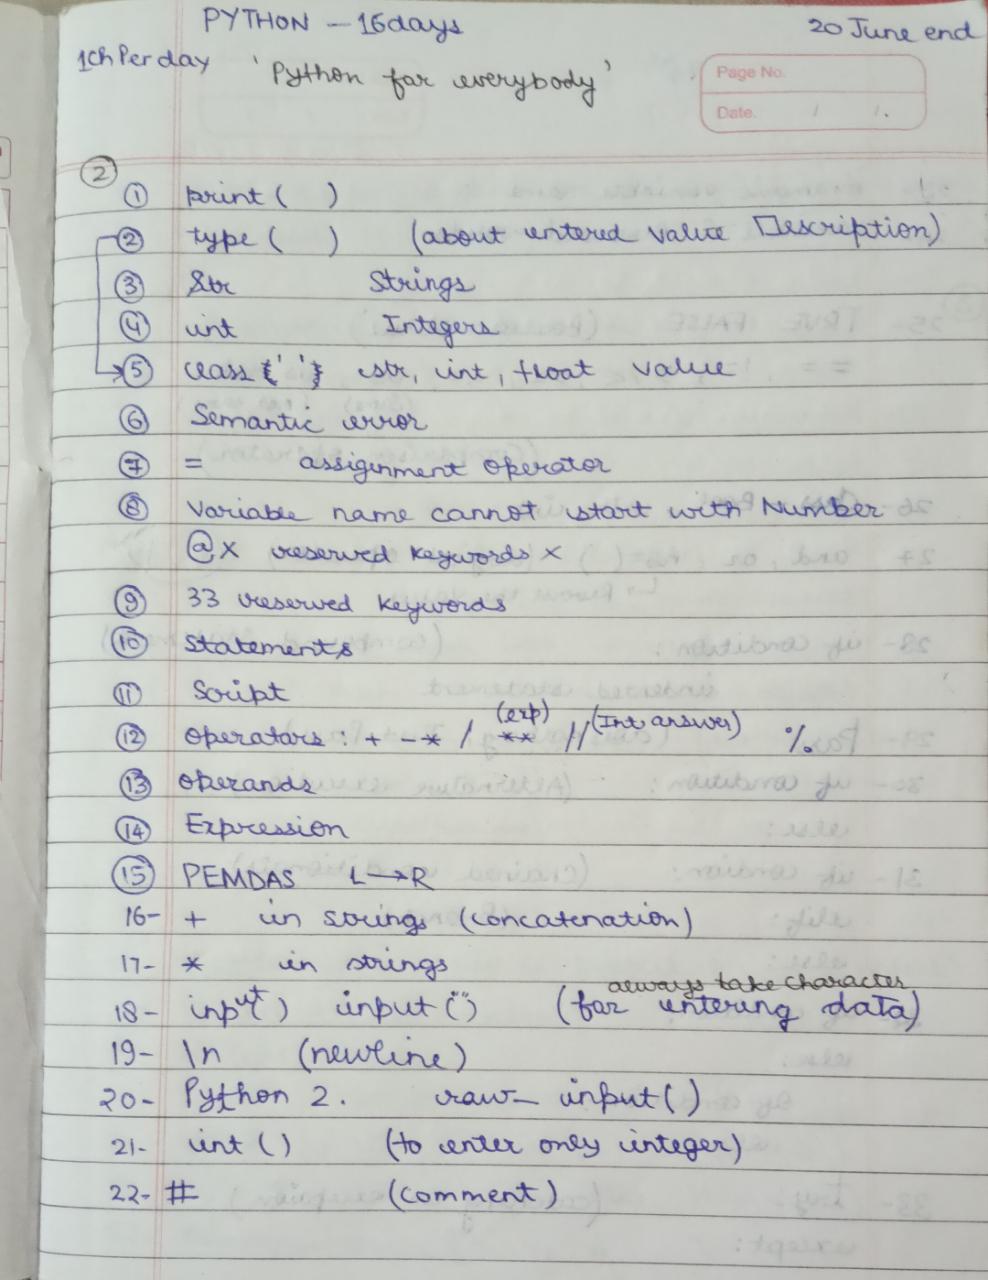 PYTHON - 16days
20 June end
1ch Per day 'Python for everybody'
Page No.
Date. / /.
② 
① print ( )
② type ( ) (about entered value Description)
③ Str Strings
④ int Integers
⑤ class {' '} str, int, float value
⑥ Semantic error
⑦ = assignment operator
⑧ Variable name cannot start with Number
@ x reserved keywords x
⑨ 33 reserved keywords
⑩ Statements
⑪ Script
(exp) (Int answer)
⑫ Operators : + - * / ** // %
⑬ operands
⑭ Expression
⑮ PEMDAS L→R
16- + in strings (concatenation)
17- * in strings
always take character
18- input() input("") (for entering data)
19- \n (newline)
20- Python 2. raw_input()
21- int () (to enter only integer)
22- # (comment)